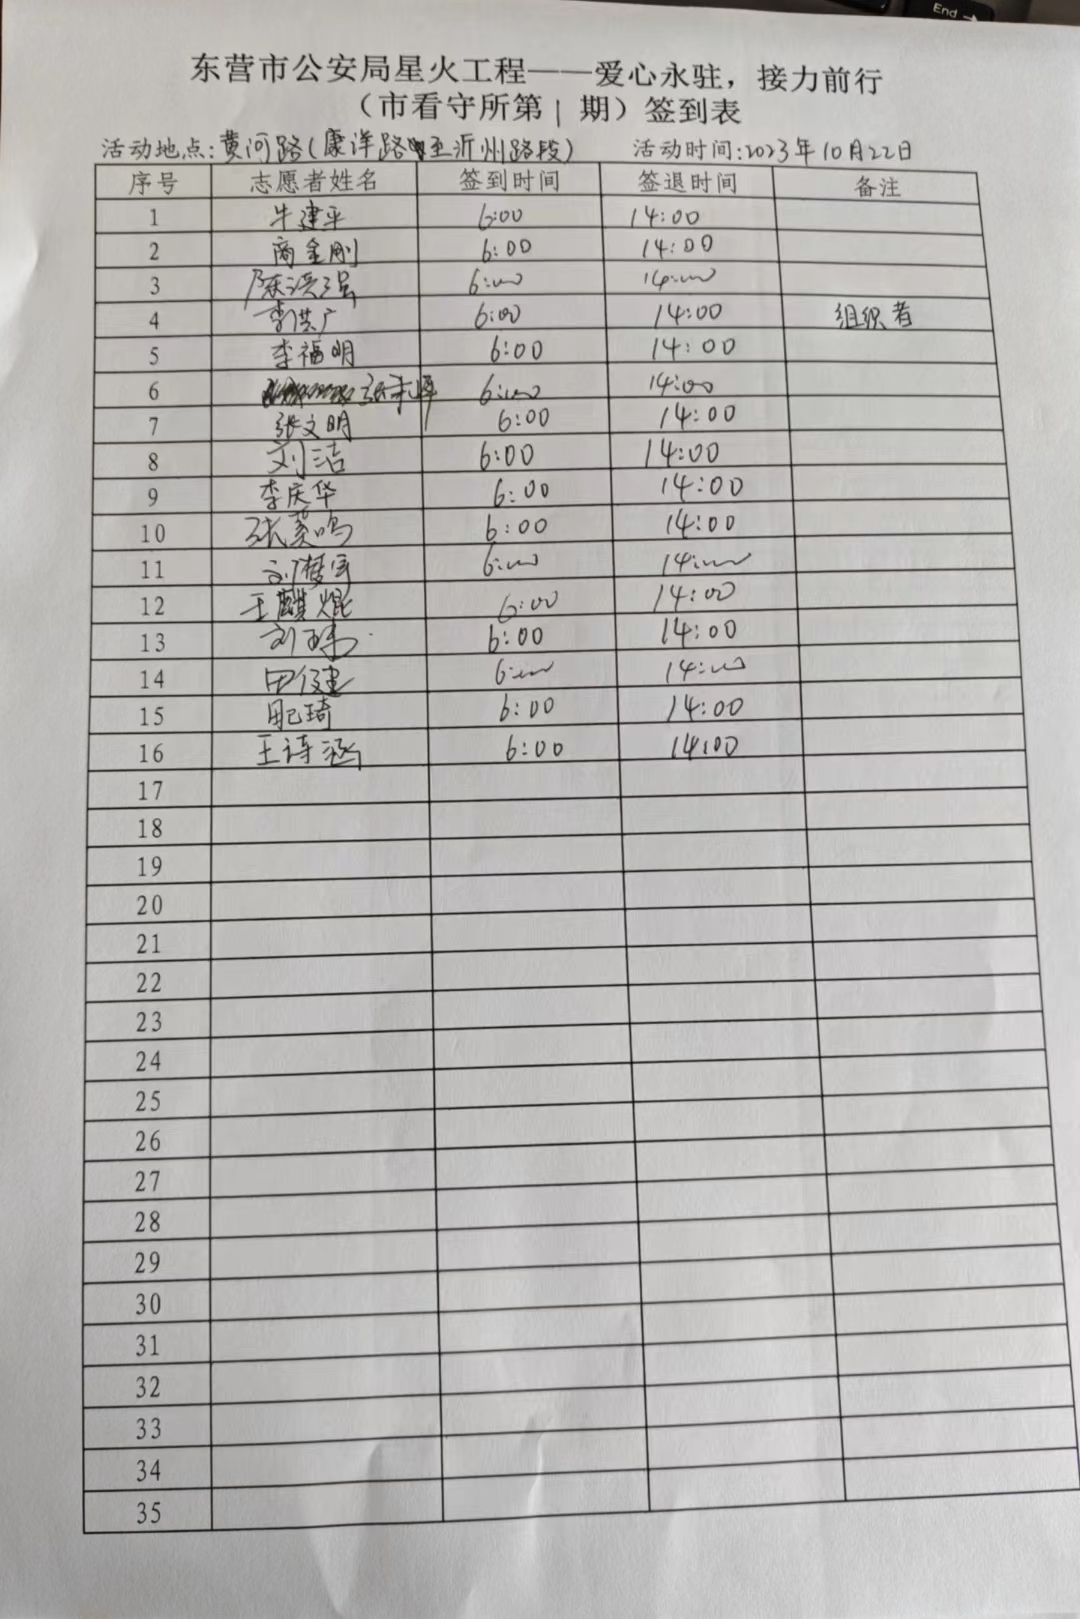 End →
东营市公安局星火工程——爱心永驻，接力前行
（市看守所第1期）签到表
活动地点:黄河路(康洋路至沂州路段) 活动时间:2023年10月22日
序号 志愿者姓名 签到时间 签退时间 备注
1 牛建平 6:00 14:00
2 商金刚 6:00 14:00
3 陈洪强 6:00 14:00
4 李洪广 6:00 14:00 组织者
5 李福明 6:00 14:00
6 6:00 14:00
7 张文明 6:00 14:00
8 刘洁 6:00 14:00
9 李庆华 6:00 14:00
10 6:00 14:00
11 刘梦宇 6:00 14:00
12 王麒焜 6:00 14:00
13 刘玮 6:00 14:00
14 田健 6:00 14:00
15 6:00 14:00
16 王诗涵 6:00 14:00
17
18
19
20
21
22
23
24
25
26
27
28
29
30
31
32
33
34
35